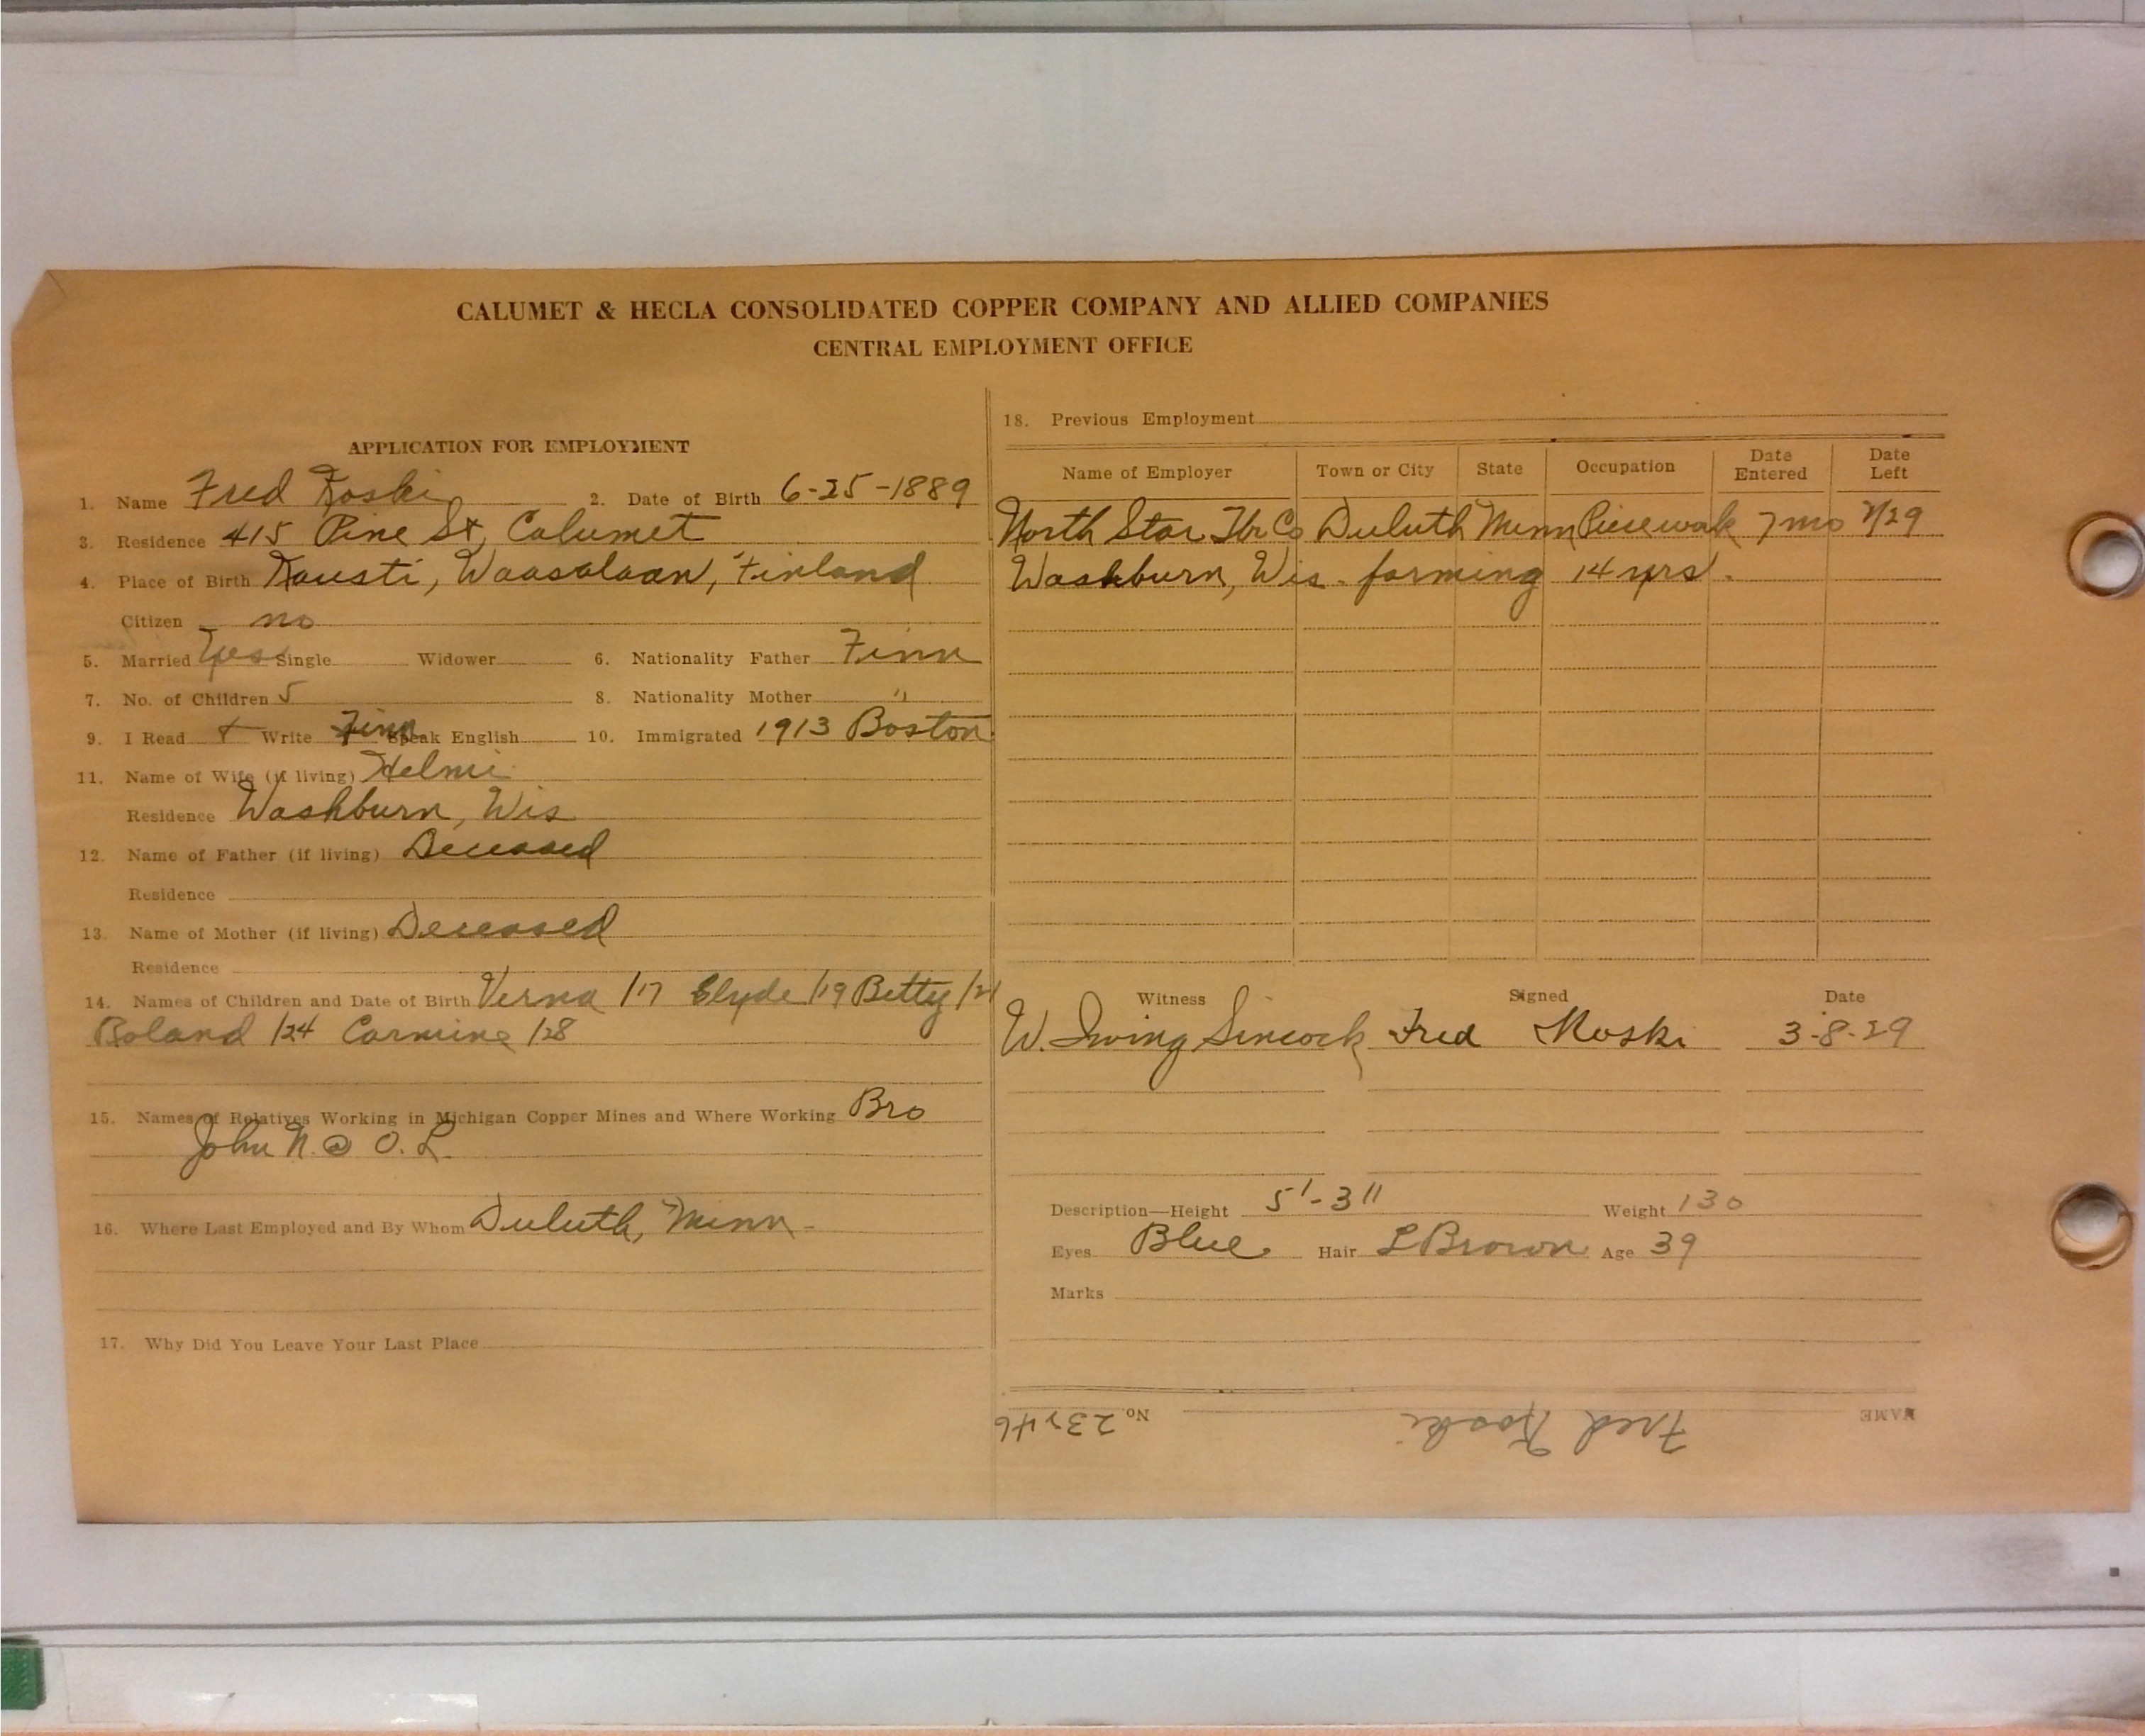 CALUMET & HECLA CONSOLIDATED COPPER COMPANY AND ALLIED COMPANIES
CENTRAL EMPLOYMENT OFFICE
APPLICATION FOR EMPLOYMENT
1. Name Fred Koski 2. Date of Birth 6-25-1889
3. Residence 415 Pine St, Calumet
4. Place of Birth Kausti, Waasalaan, Finland
Citizen no
5. Married Yes Single Widower 6. Nationality Father Finn
7. No. of Children 5 8. Nationality Mother "
9. I Read + Write Finn Speak English 10. Immigrated 1913 Boston
11. Name of Wife (if living) Helmi
Residence Washburn, Wis
12. Name of Father (if living) Deceased
Residence
13. Name of Mother (if living) Deceased
Residence
14. Names of Children and Date of Birth Verna /17 Clyde /19 Betty /21
Roland /24 Carmine /28
15. Names of Relatives Working in Michigan Copper Mines and Where Working Bro
John N. @ O. L.
16. Where Last Employed and By Whom Duluth, Minn -
17. Why Did You Leave Your Last Place
18. Previous Employment
Name of Employer Town or City State Occupation Date Entered Date Left
North Star Co Duluth Minn 7 mo /29
Washburn, Wis. farming 14 yrs.
Witness Signed Date
W. Irving Sincock Fred Koski 3-8-29
Description—Height 5'-3" Weight 130
Eyes Blue Hair L Brown Age 39
Marks
NAME Fred Koski No